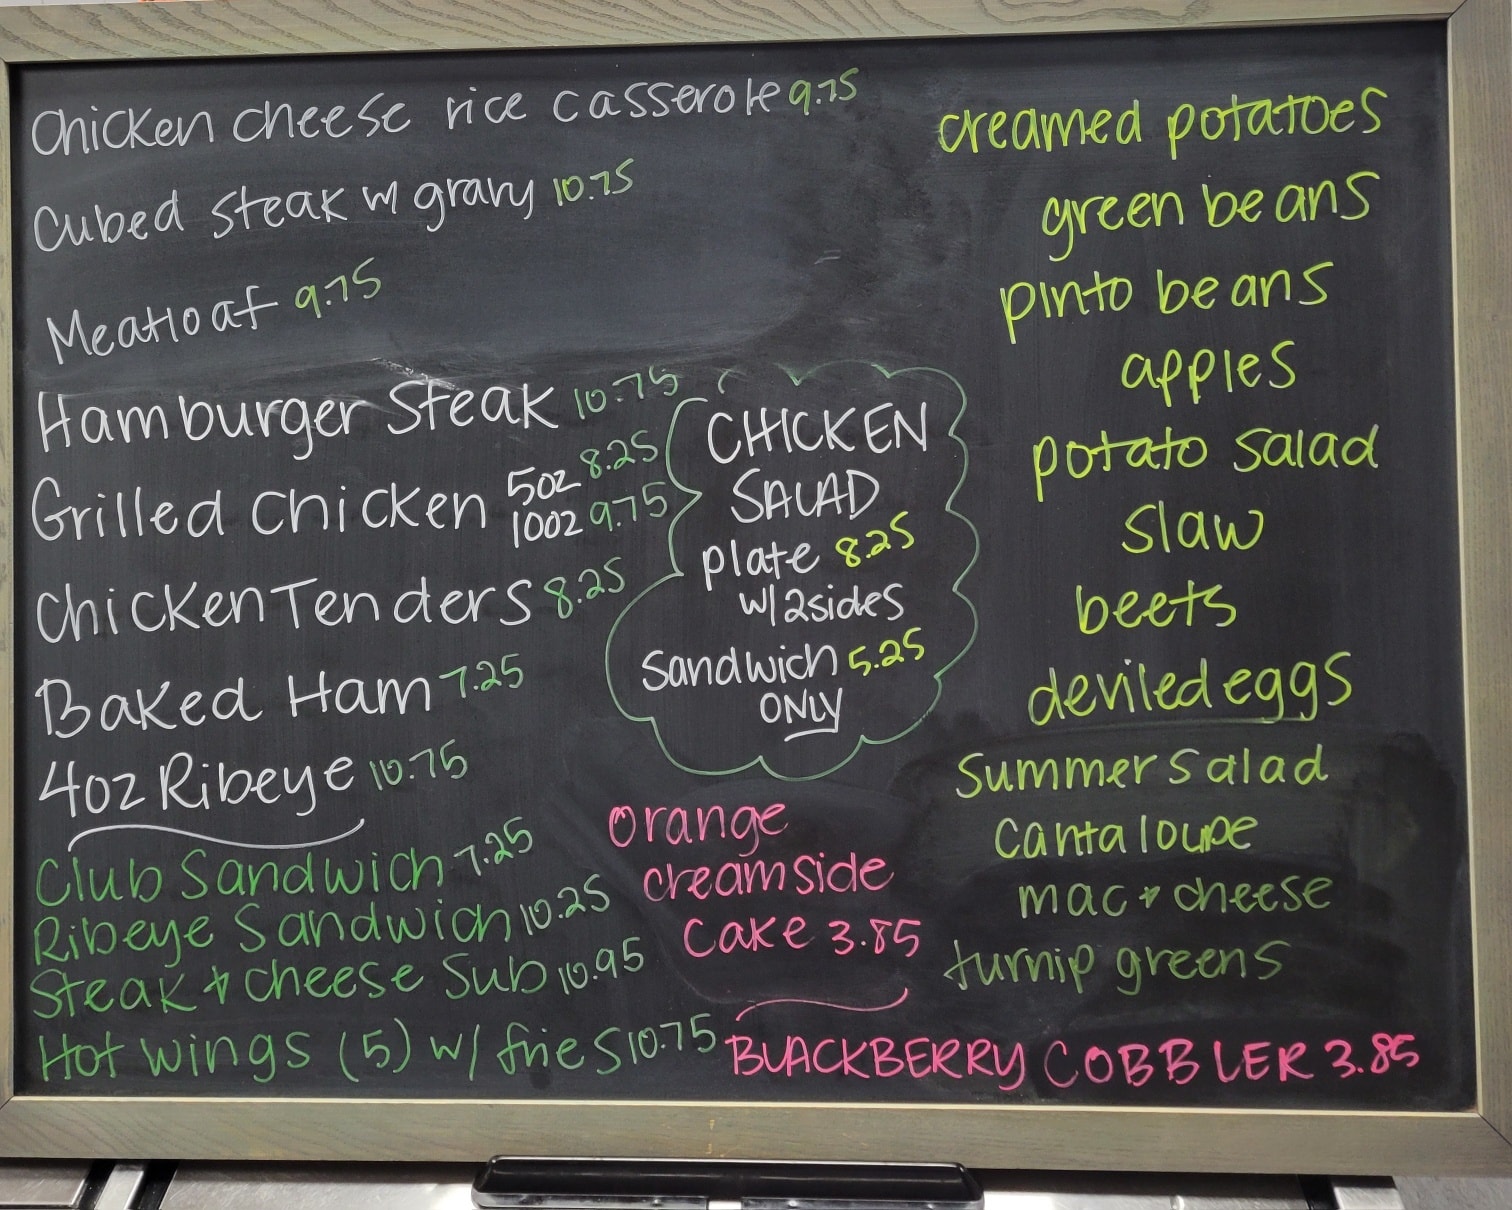 Chicken cheese rice casserole 9.75
Cubed Steak w gravy 10.75
Meatloaf 9.75
Hamburger Steak 10.75
Grilled Chicken 5oz 8.25
10oz 9.75
Chicken Tenders 8.25
Baked Ham 7.25
4oz Ribeye 10.75
Club Sandwich 7.25
Ribeye Sandwich 10.25
Steak & cheese Sub 10.95
Hot wings (5) w/ fries 10.75
CHICKEN
SALAD
plate 8.25
w/2sides
Sandwich 5.25
ONLY
Orange
creamside
Cake 3.85
BLACKBERRY COBBLER 3.85
creamed potatoes
green beans
pinto beans
apples
potato salad
slaw
beets
deviled eggs
Summer Salad
Cantaloupe
mac & cheese
turnip greens